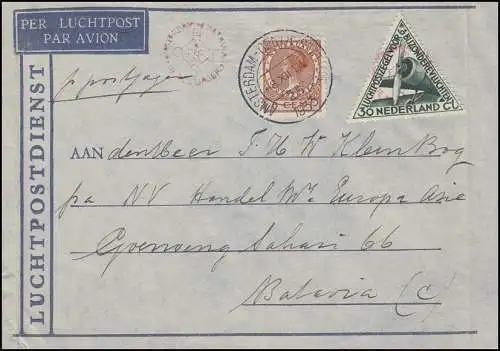 PER LUCHTPOST
PAR AVION
p postjager
LUCHTPOSTDIENST
AMSTERDAM
CENT
LUCHTPOSTZEGEL VOOR BIJZONDERE VLUCHTEN
30 NEDERLAND CT.
AAN den Heer F H W Klein Bog
p/a NV Handel Mij Europa Azie
Goenoeng Sahari 66
Batavia (C)